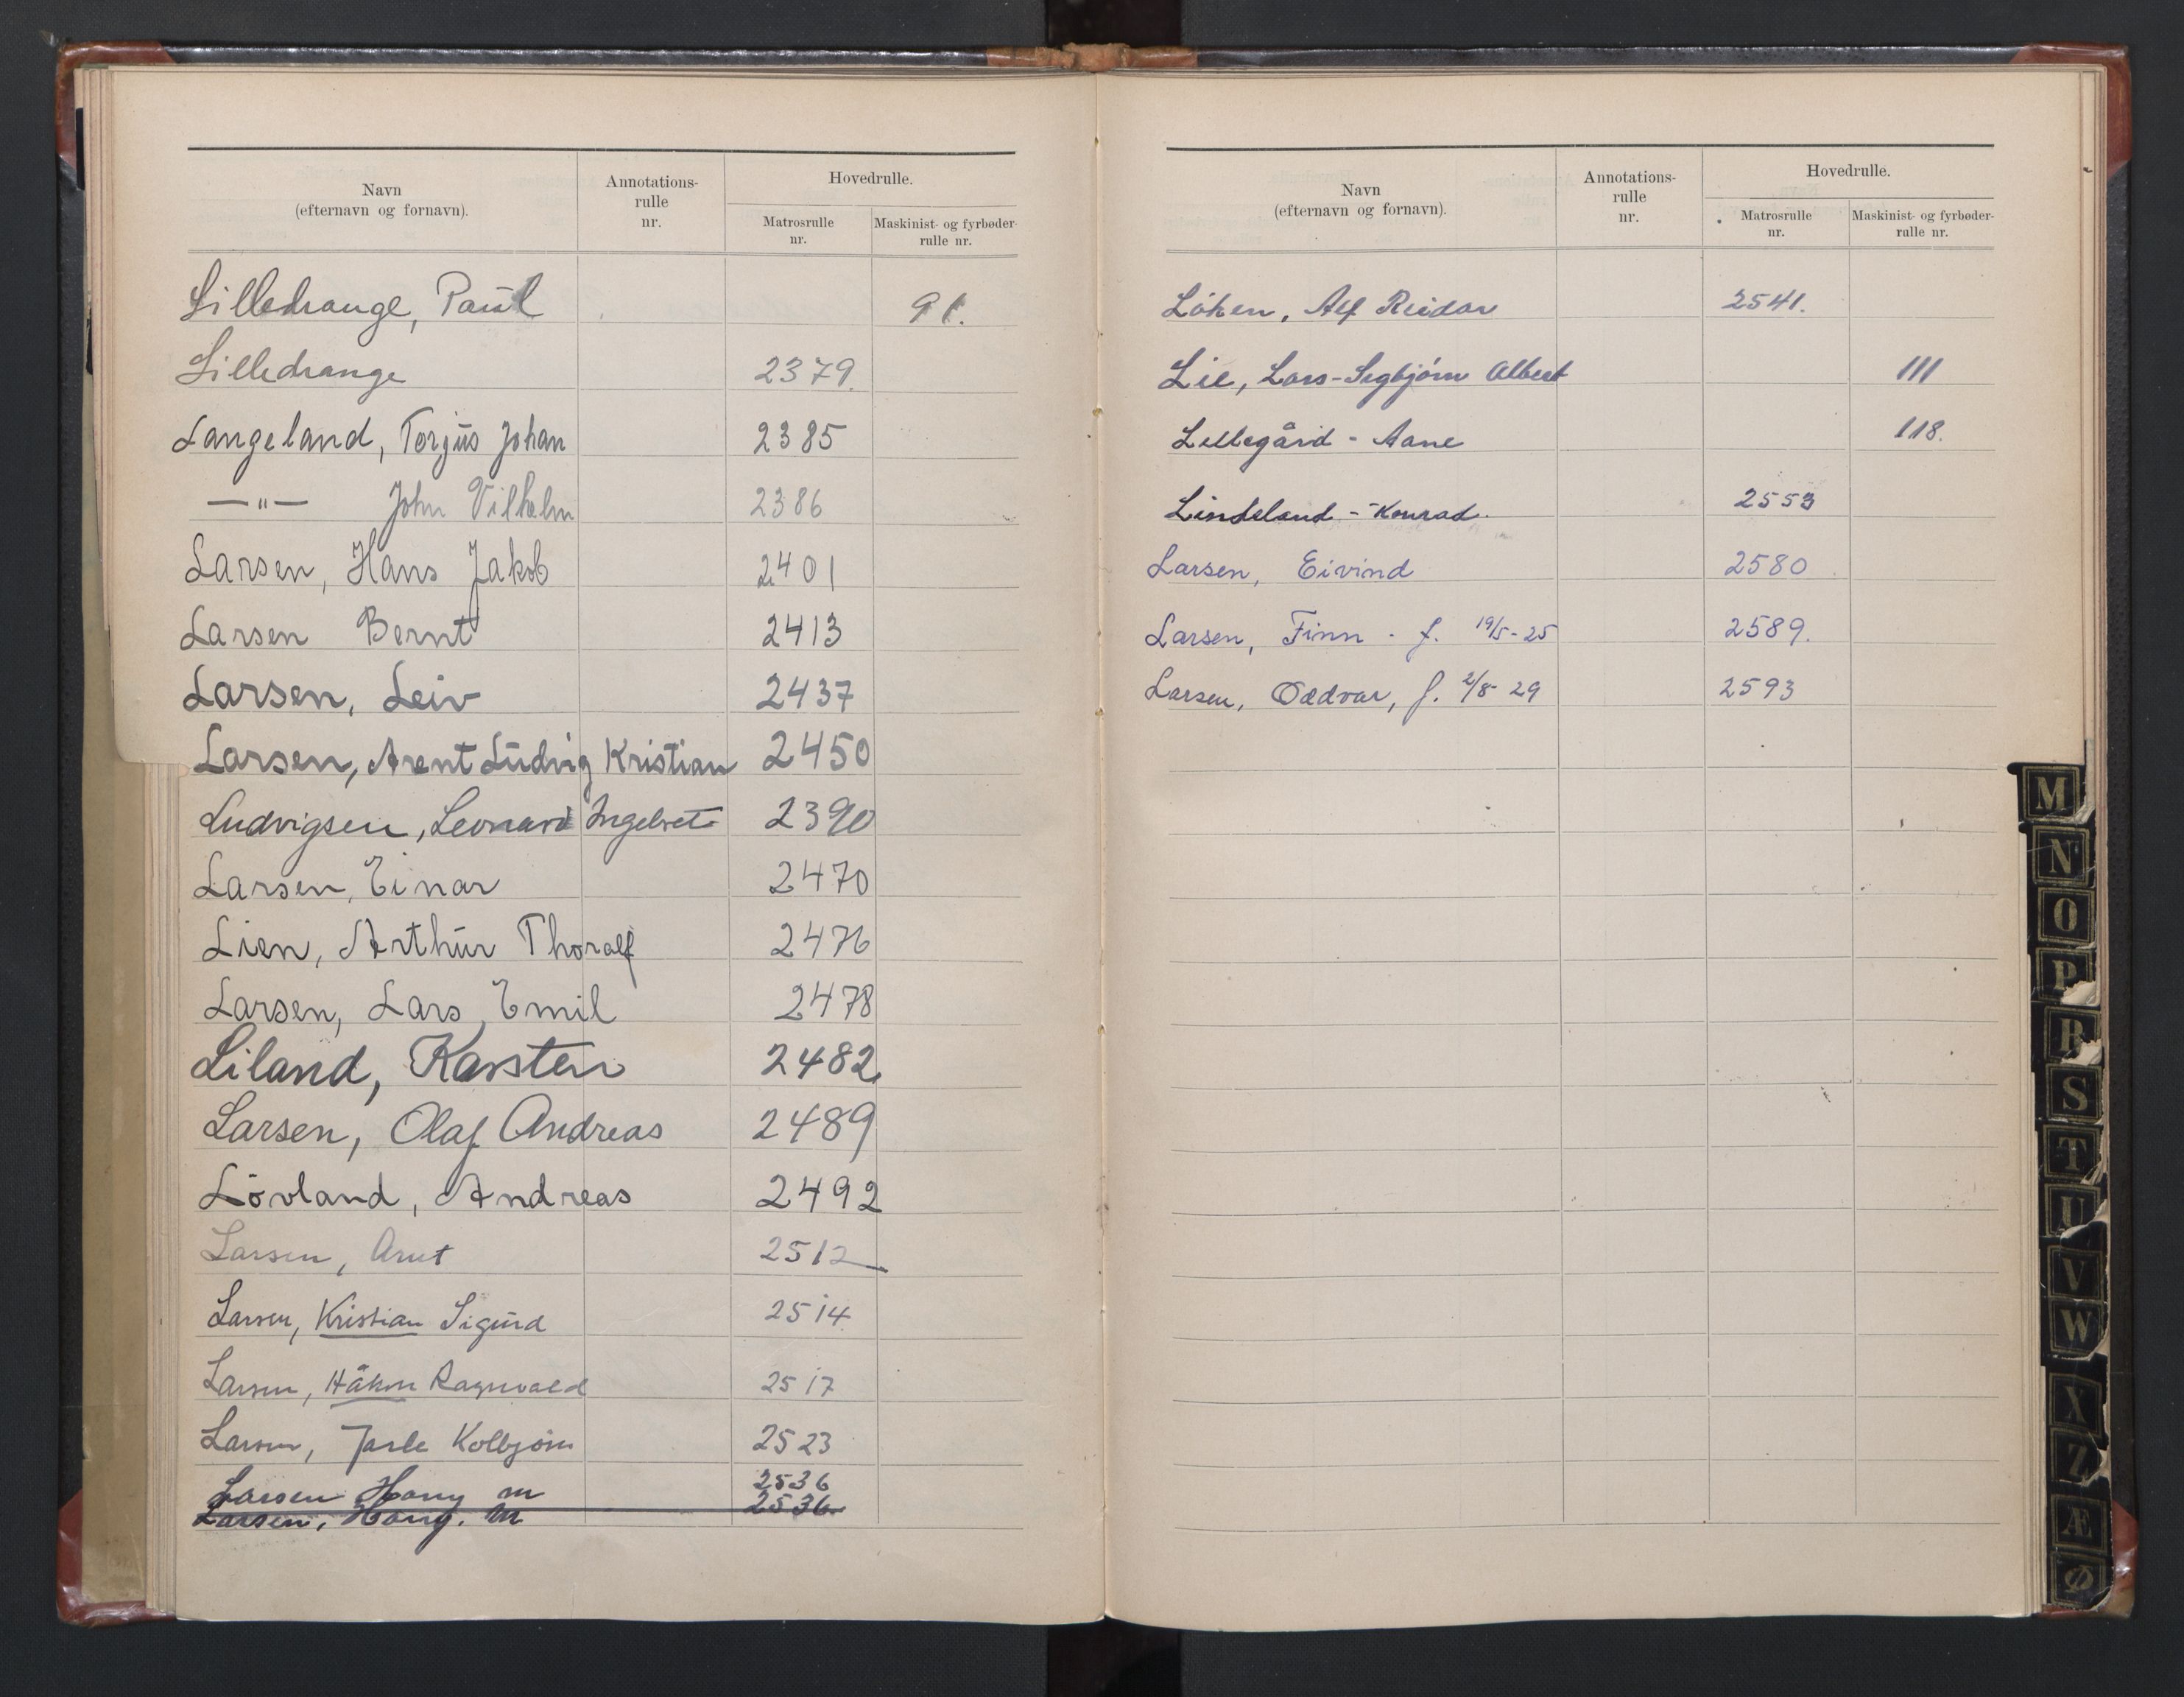 Navn
(efternavn og fornavn).
Annotations-
rulle
nr.
Hovedrulle.
Matrosrulle
nr.
Maskinist- og fyrbøder-
rulle nr.
Lilledrange, Paul 91.
Lilledrange 2379.
Langeland, Torjus Johan 2385
—"— John Vilhelm 2386
Larsen, Hans Jakob 2401
Larsen Bernt 2413
Larsen, Leiv 2437
Larsen, Arent Ludvig Kristian 2450
Ludvigsen, Leonard Ingelret 2390
Larsen, Einar 2470
Lien, Arthur Thoralf 2476
Larsen, Lars Emil 2478
Liland, Karsten 2482
Larsen, Olaf Andreas 2489
Lövland, Andreas 2492
Larsen, Arnt 2512
Larsen, Kristian Sigurd 2514
Larsen, Håkon Ragnvald 2517
Larsen, Jarle Kolbjørn 2523
Larsen Harry M 2536
Larsen, Harry. M 2536.
Navn
(efternavn og fornavn).
Annotations-
rulle
nr.
Hovedrulle.
Matrosrulle
nr.
Maskinist- og fyrbøder-
rulle nr.
Löken, Alf Reidar 2541.
Lie, Lars-Segbjörn Albert 111
Lillegård - Aane 118.
Lindeland - Konrad. 2553
Larsen, Eivind 2580
Larsen, Finn - f. 19/5-25 2589.
Larsen, Oddvar, f. 2/8-29 2593
M
N
O
P
R
S
T
U
V
W
X
Z
Æ
Ø